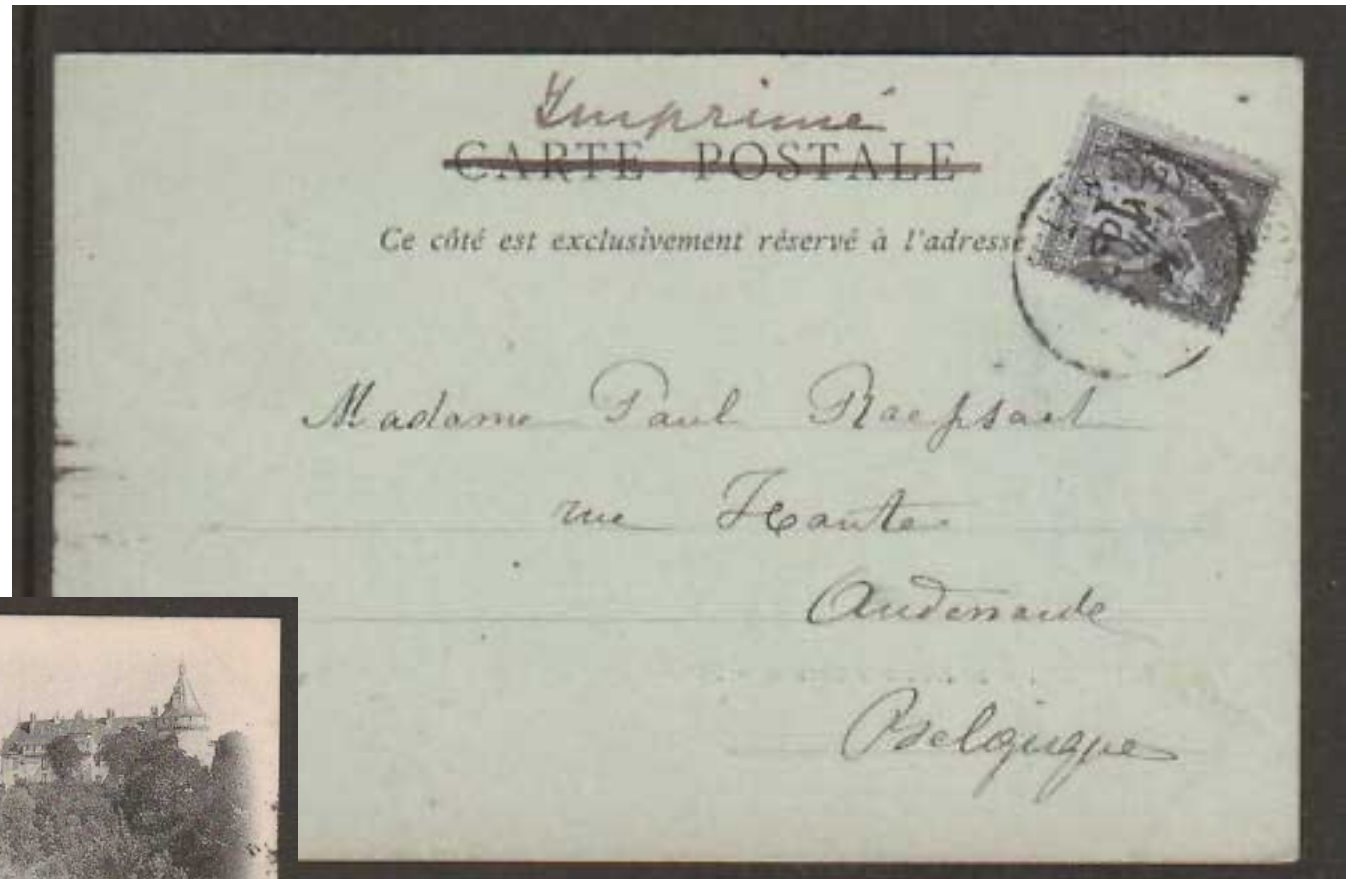 Imprimé
CARTE POSTALE
Ce côté est exclusivement réservé à l'adresse
Madame Paul Raepsaet
rue Haute
Audenarde
Belgique